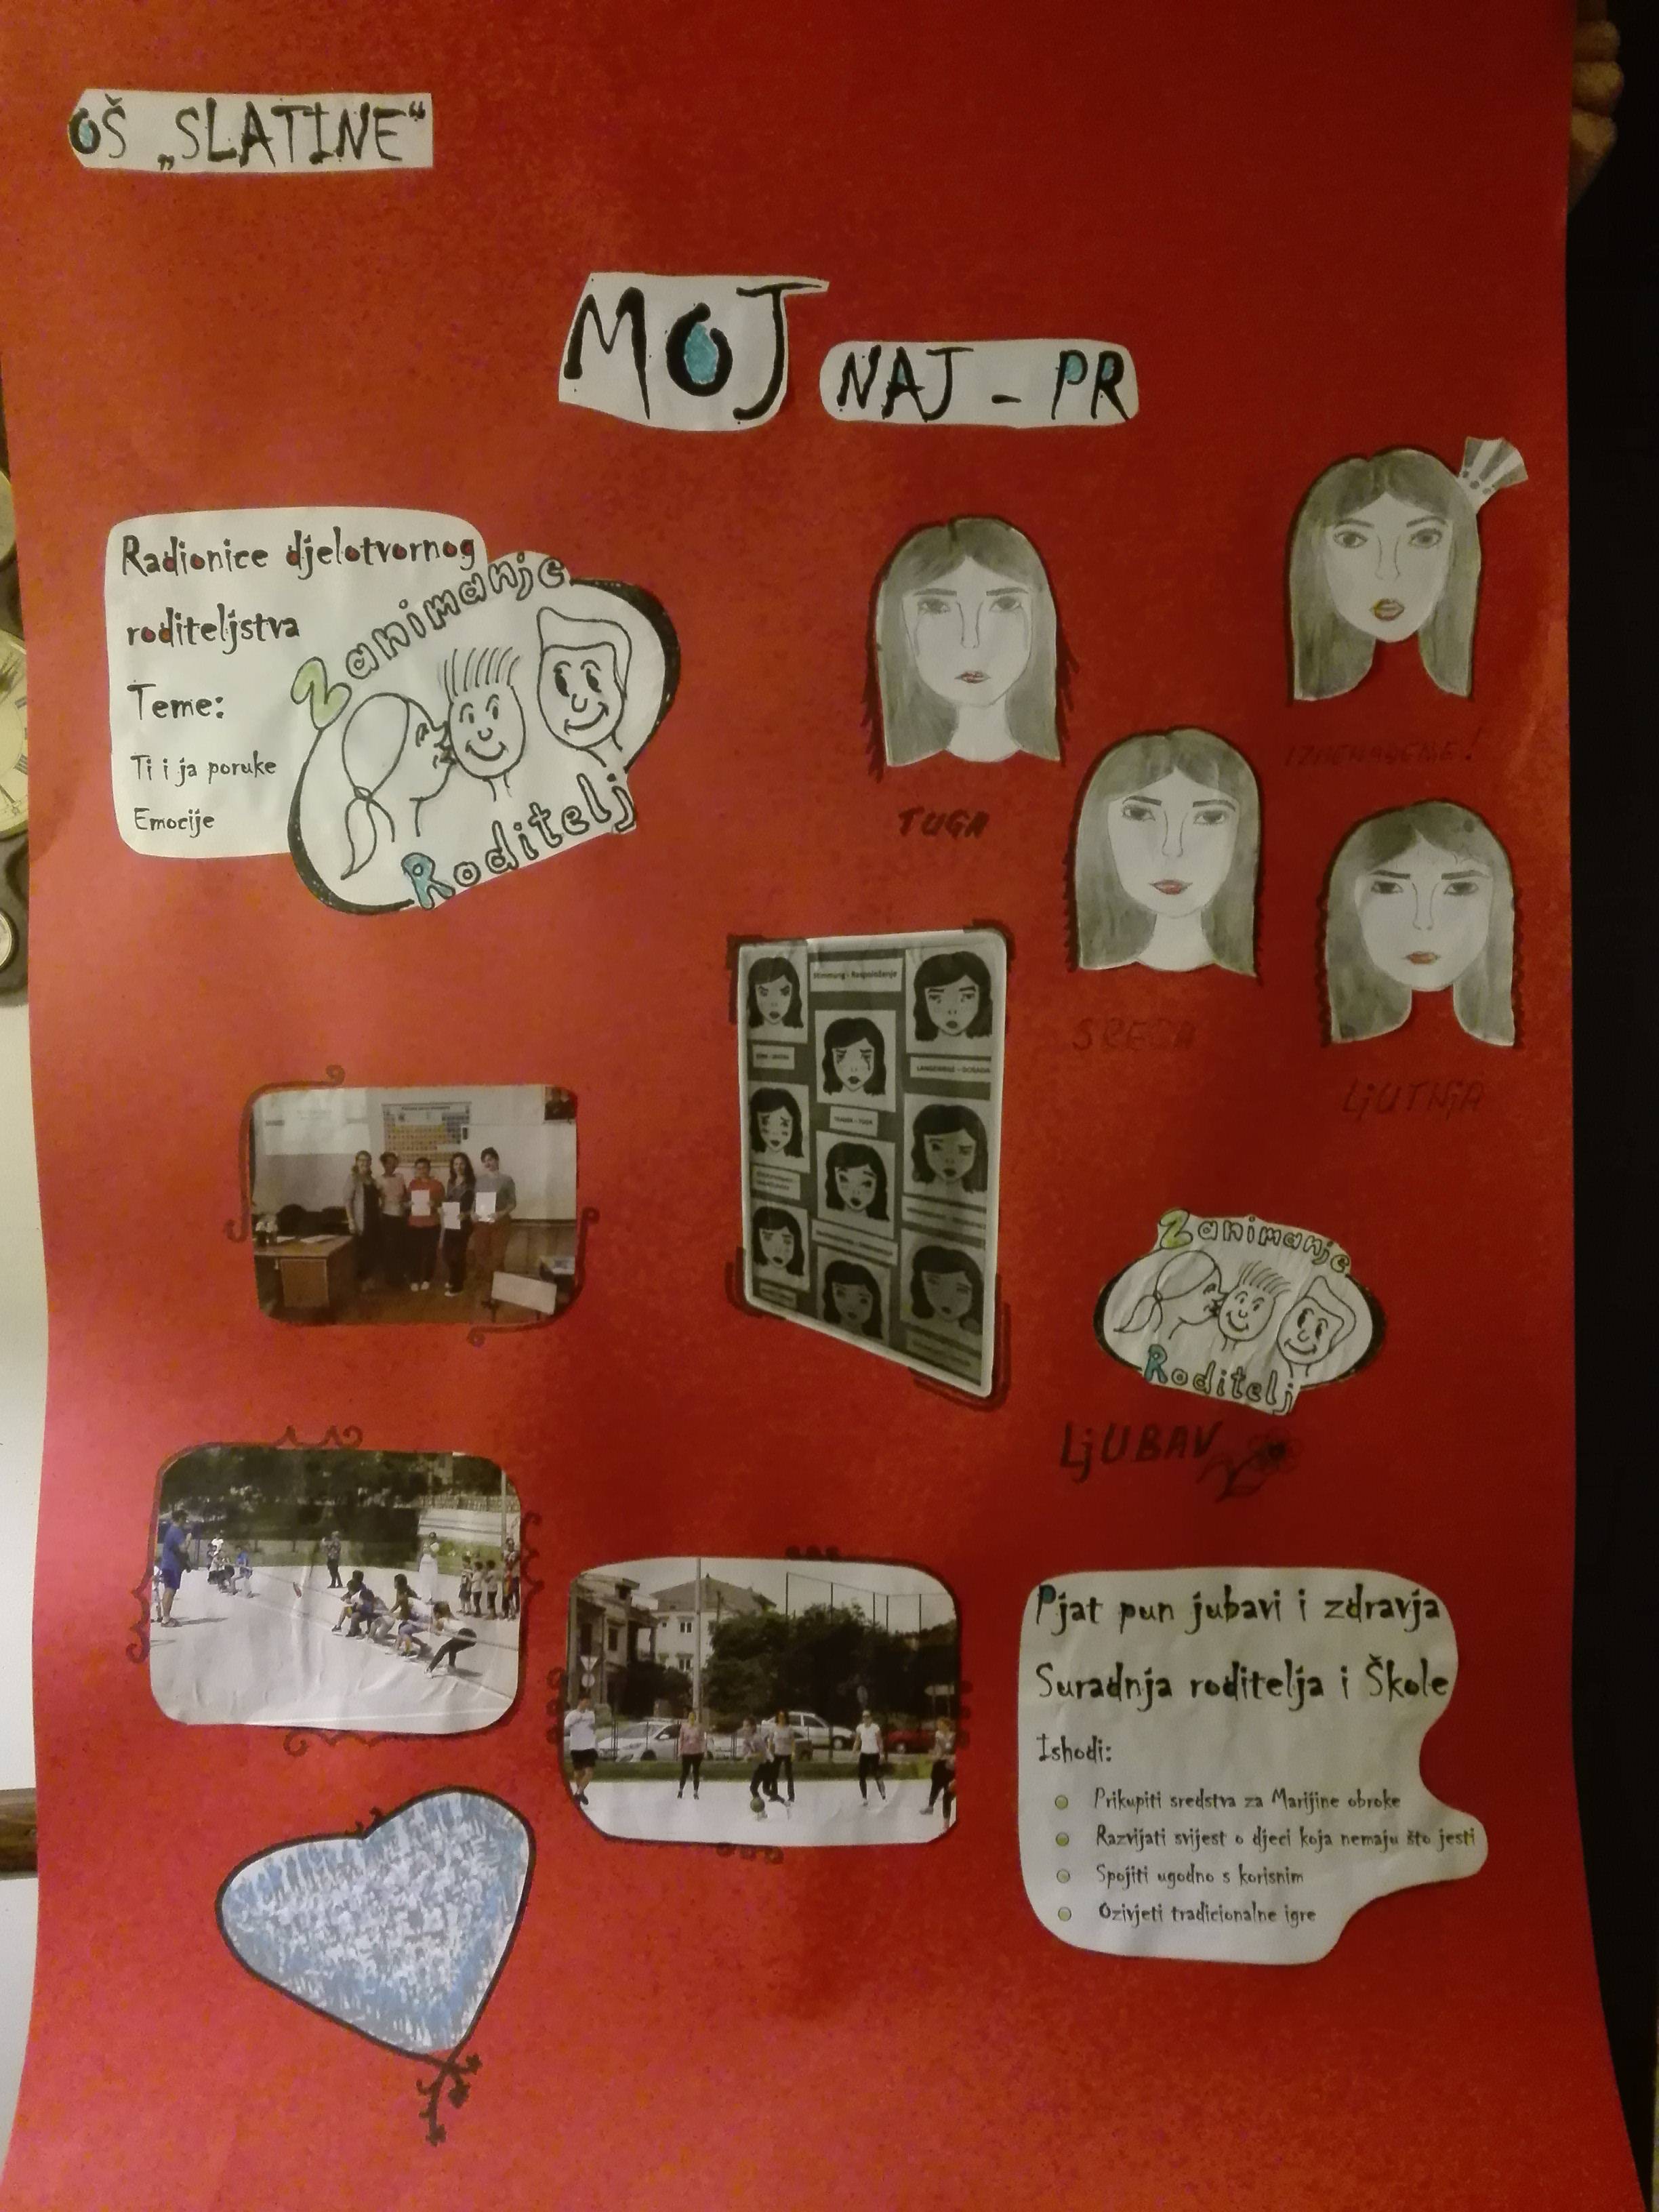 OŠ „SLATINE“
MOJ
NAJ - PR
Radionice djelotvornog
roditeljstva
Teme:
Ti i ja poruke
Emocije
Zanimanje
Roditelj
TUGA
IZNENAĐENJE!
SREĆA
LJUTNJA
Stimmung - Raspoloženje
Zanimanje
Roditelj
LjUBAV
Pjat pun jubavi i zdravja
Suradnja roditelja i Škole
Ishodi:
Prikupiti sredstva za Marijine obroke
Razvijati svijest o djeci koja nemaju što jesti
Spojiti ugodno s korisnim
Ozivjeti tradicionalne igre